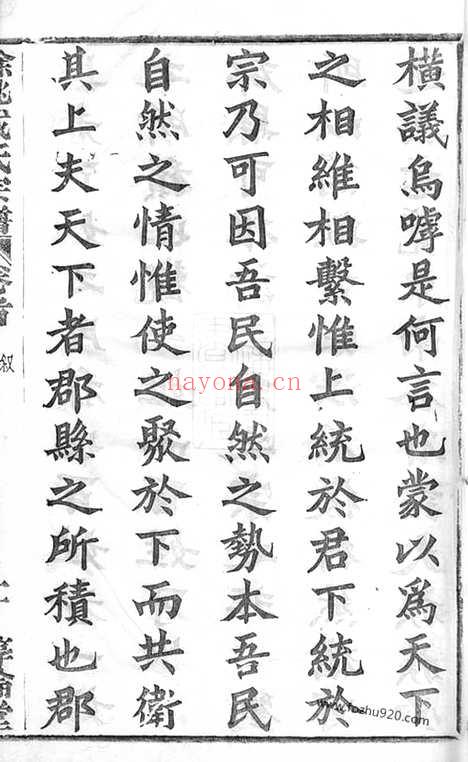 橫議烏嘑是何言也蒙以爲天下
之相維相繫惟上統於君下統於
宗乃可因吾民自然之勢本吾民
自然之情惟使之聚於下而共衛
其上夫天下者郡縣之所積也郡
叙
hayona.cn
www.fozhu920.com